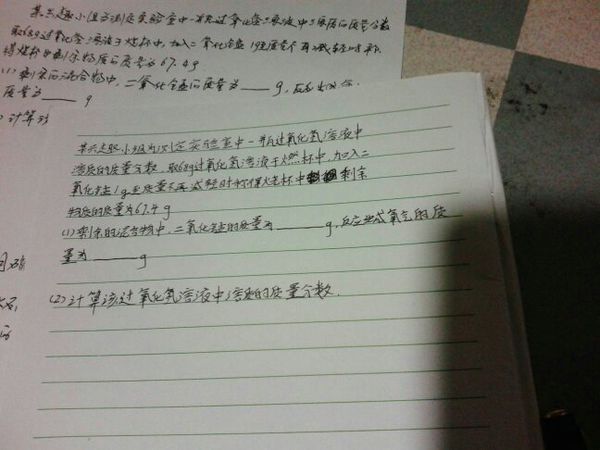 某兴趣小组为测定实验室中一瓶过氧化氢溶液中溶质的质量分数
取68g过氧化氢溶液于烧杯中,加入二氧化锰1g至质量不再减轻时称
得烧杯中剩余物质的质量为67.4g
(1)剩余的混合物中,二氧化锰的质量为____g,反应生成
质量为____g
计算
某兴趣小组为测定实验室中一瓶过氧化氢溶液中
溶质的质量分数,取68g过氧化氢溶液于燃杯中,加入二
氧化锰1g至质量不再减轻时称得火老杯中剩余
物质的质量为67.4g
(1)剩余的混合物中,二氧化锰的质量为____g,反应生成氧气的质
量为____g
(2)计算该过氧化氢溶液中溶质的质量分数.